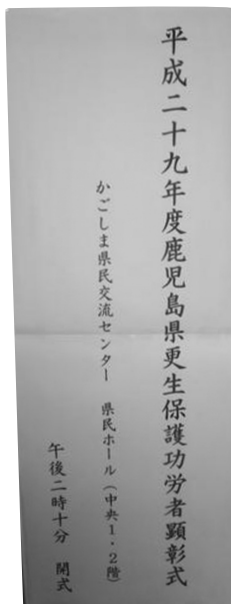 平成二十九年度鹿児島県更生保護功労者顕彰式
かごしま県民交流センター　県民ホール（中央1・2階）
午後二時十分　開式